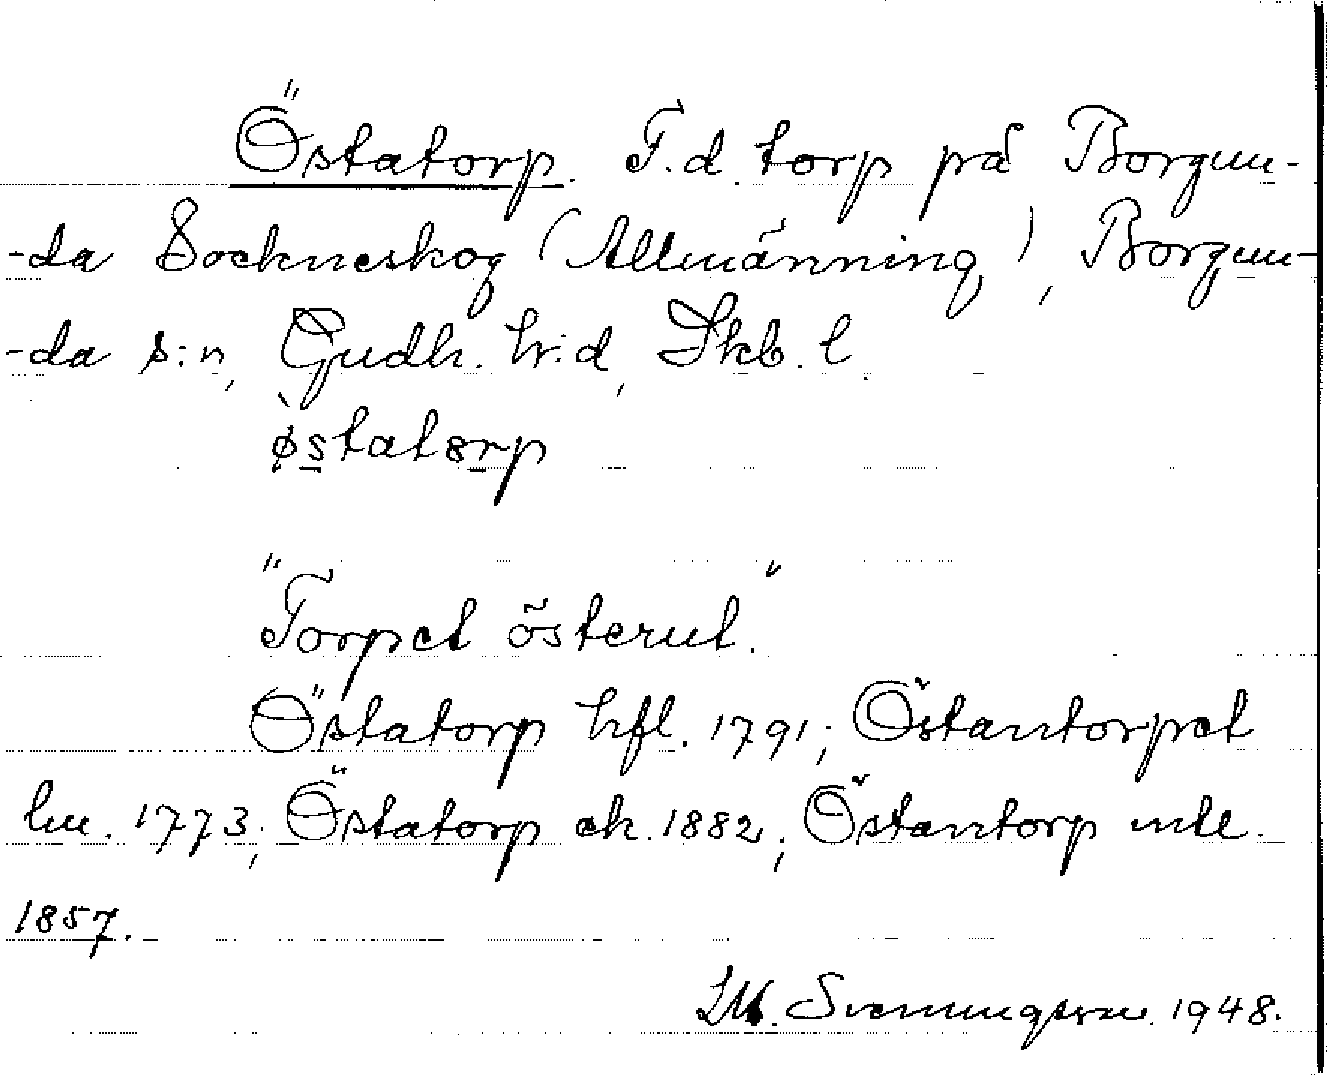 Östatorp. F.d. torp på Borgun-
-da Sockneskog (Allmänning), Borgun-
-da s:n, Gudh. hr:d, Skb. l.
`østatɷrp
"Torpet österut."
Östatorp hfl. 1791; Östantorpet
lm. 1773; Östatorp ek. 1882; Östantorp mtl.
1857.
Svenungsson 1948.